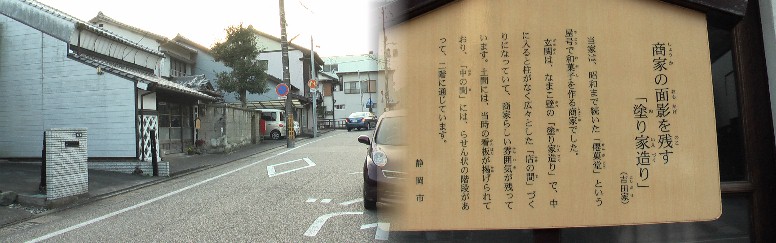 商家の面影を残す
「塗り家造り」
(吉田家)
当家は、昭和まで続いた「僊菓堂」という
屋号で和菓子を作る商家でした。
玄関は、なまこ壁の「塗り家造り」で、中
に入ると柱がなく広々とした「店の間」づく
りになっていて、商家らしい雰囲気が残って
います。土間には、当時の看板が掲げられて
おり、「中の間」には、らせん状の階段があ
って、二階に通じています。
静岡市